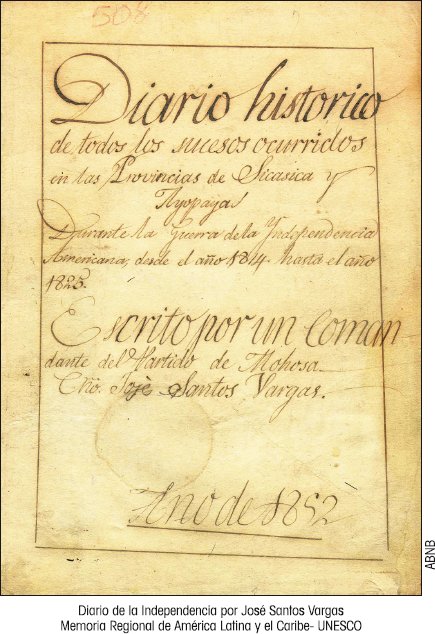 508
Diario historico
de todos los sucesos ocurridos
en las Provincias de Sicasica y
Ayopaya
Durante la Guerra de la Yndependencia
Americana, desde el año 1814. hasta el año
1825.
Escrito por un Coman
dante del Partido de Mohosa
Cño. José Santos Vargas.
Año de 1852
ABNB
Diario de la Independencia por José Santos Vargas
Memoria Regional de América Latina y el Caribe- UNESCO